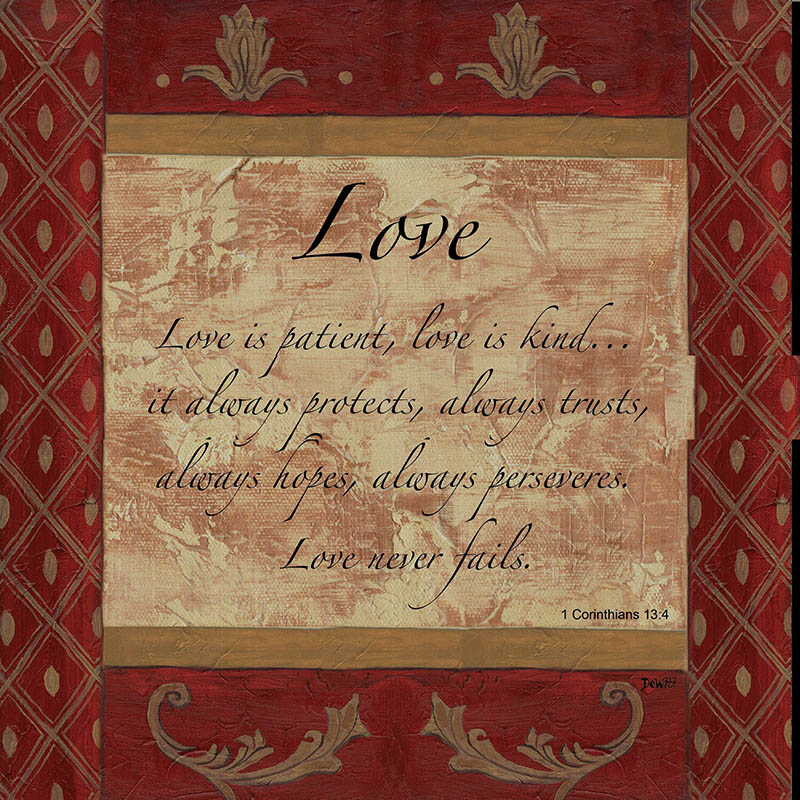 Love
Love is patient, love is kind...
it always protects, always trusts,
always hopes, always perseveres.
Love never fails.
1 Corinthians 13:4